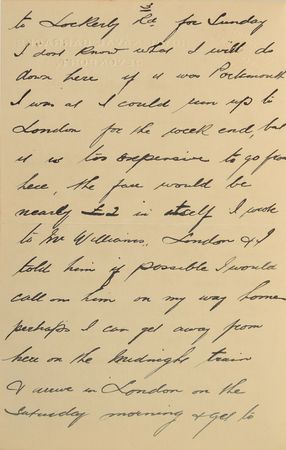 to Lockerly Rd. for Sunday
I dont know what I will do
down here if it was Portsmouth
I was at I could run up to
London for the week end, but
it is too expensive to go from
here, the fare would be
nearly £2 in itself I wrote
to Mr Williams, London & I
told him if possible I would
call on him on my way home
perhaps I can get away from
here on the midnight train
& arrive in London on the
Saturday morning & get to